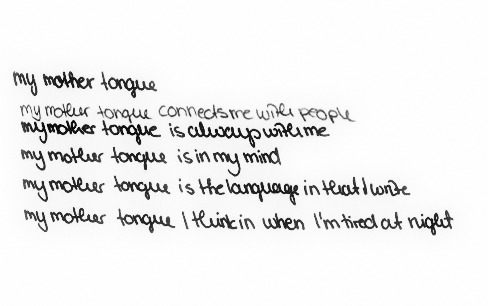 my mother tongue
my mother tongue connects me with people
my mother tongue is always with me
my mother tongue is in my mind
my mother tongue is the language in that I write
my mother tongue I think in when I'm tired at night